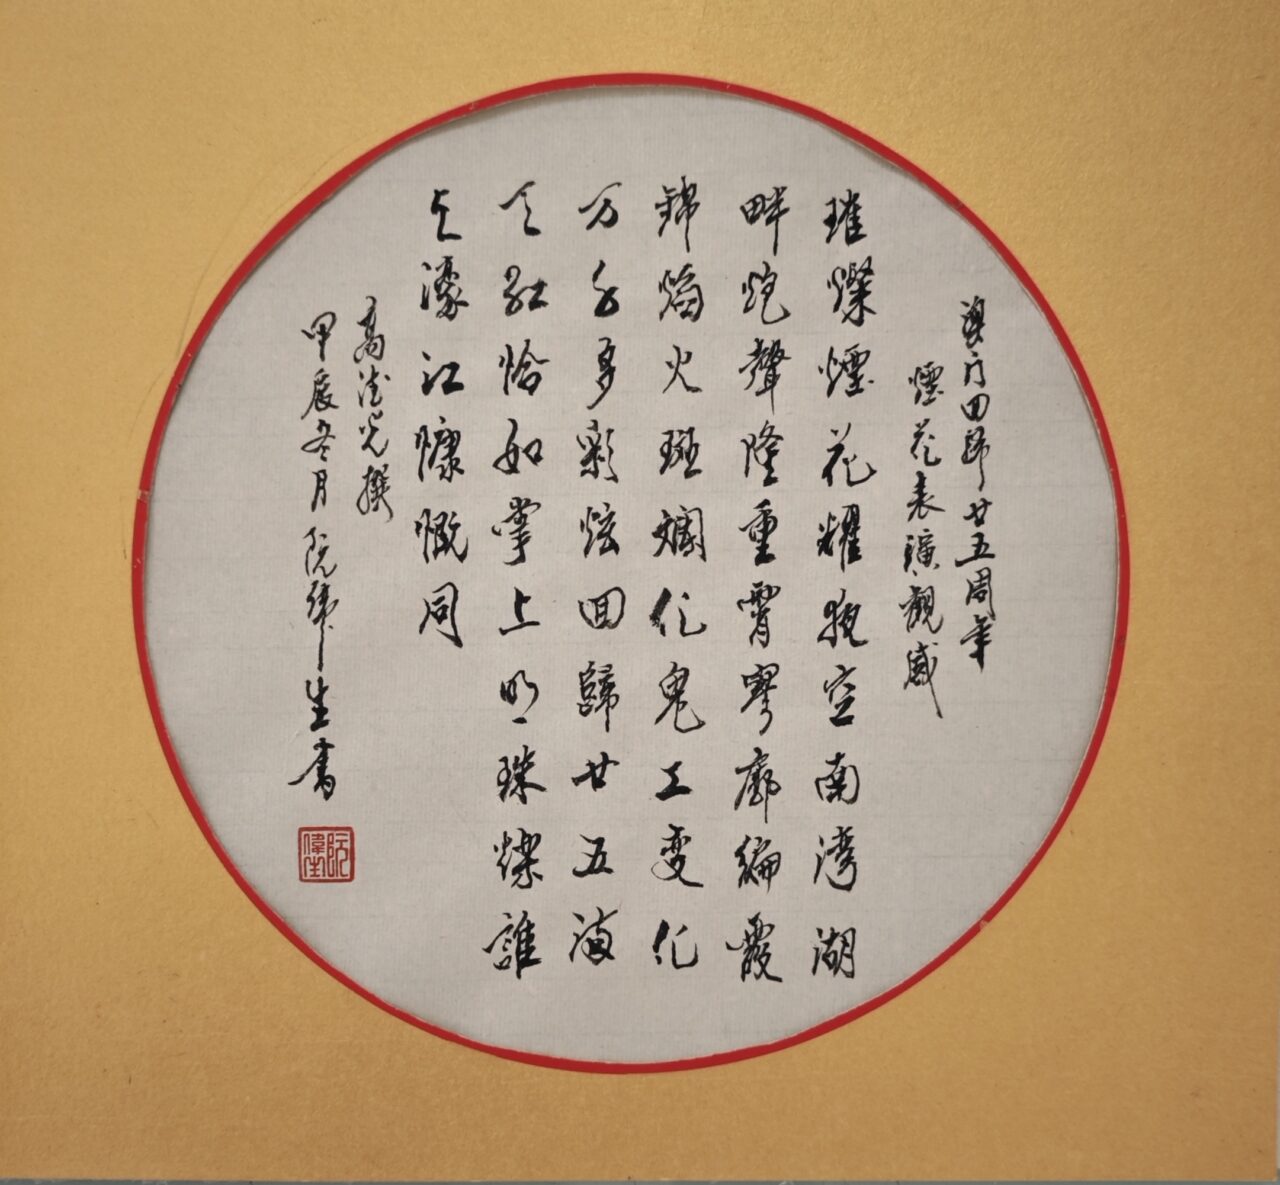 澳门回歸廿五周年
煙花表演觀感
璀燦煙花耀晚空南湾湖
畔炮聲隆重霄寥廓編霞
錦焰火斑斕化鬼工变化
万千多彩炫回歸廿五满
天红恰如掌上明珠爍誰
与濠江慷慨同
高光撰
甲辰冬月阮伟生書
阮偉生